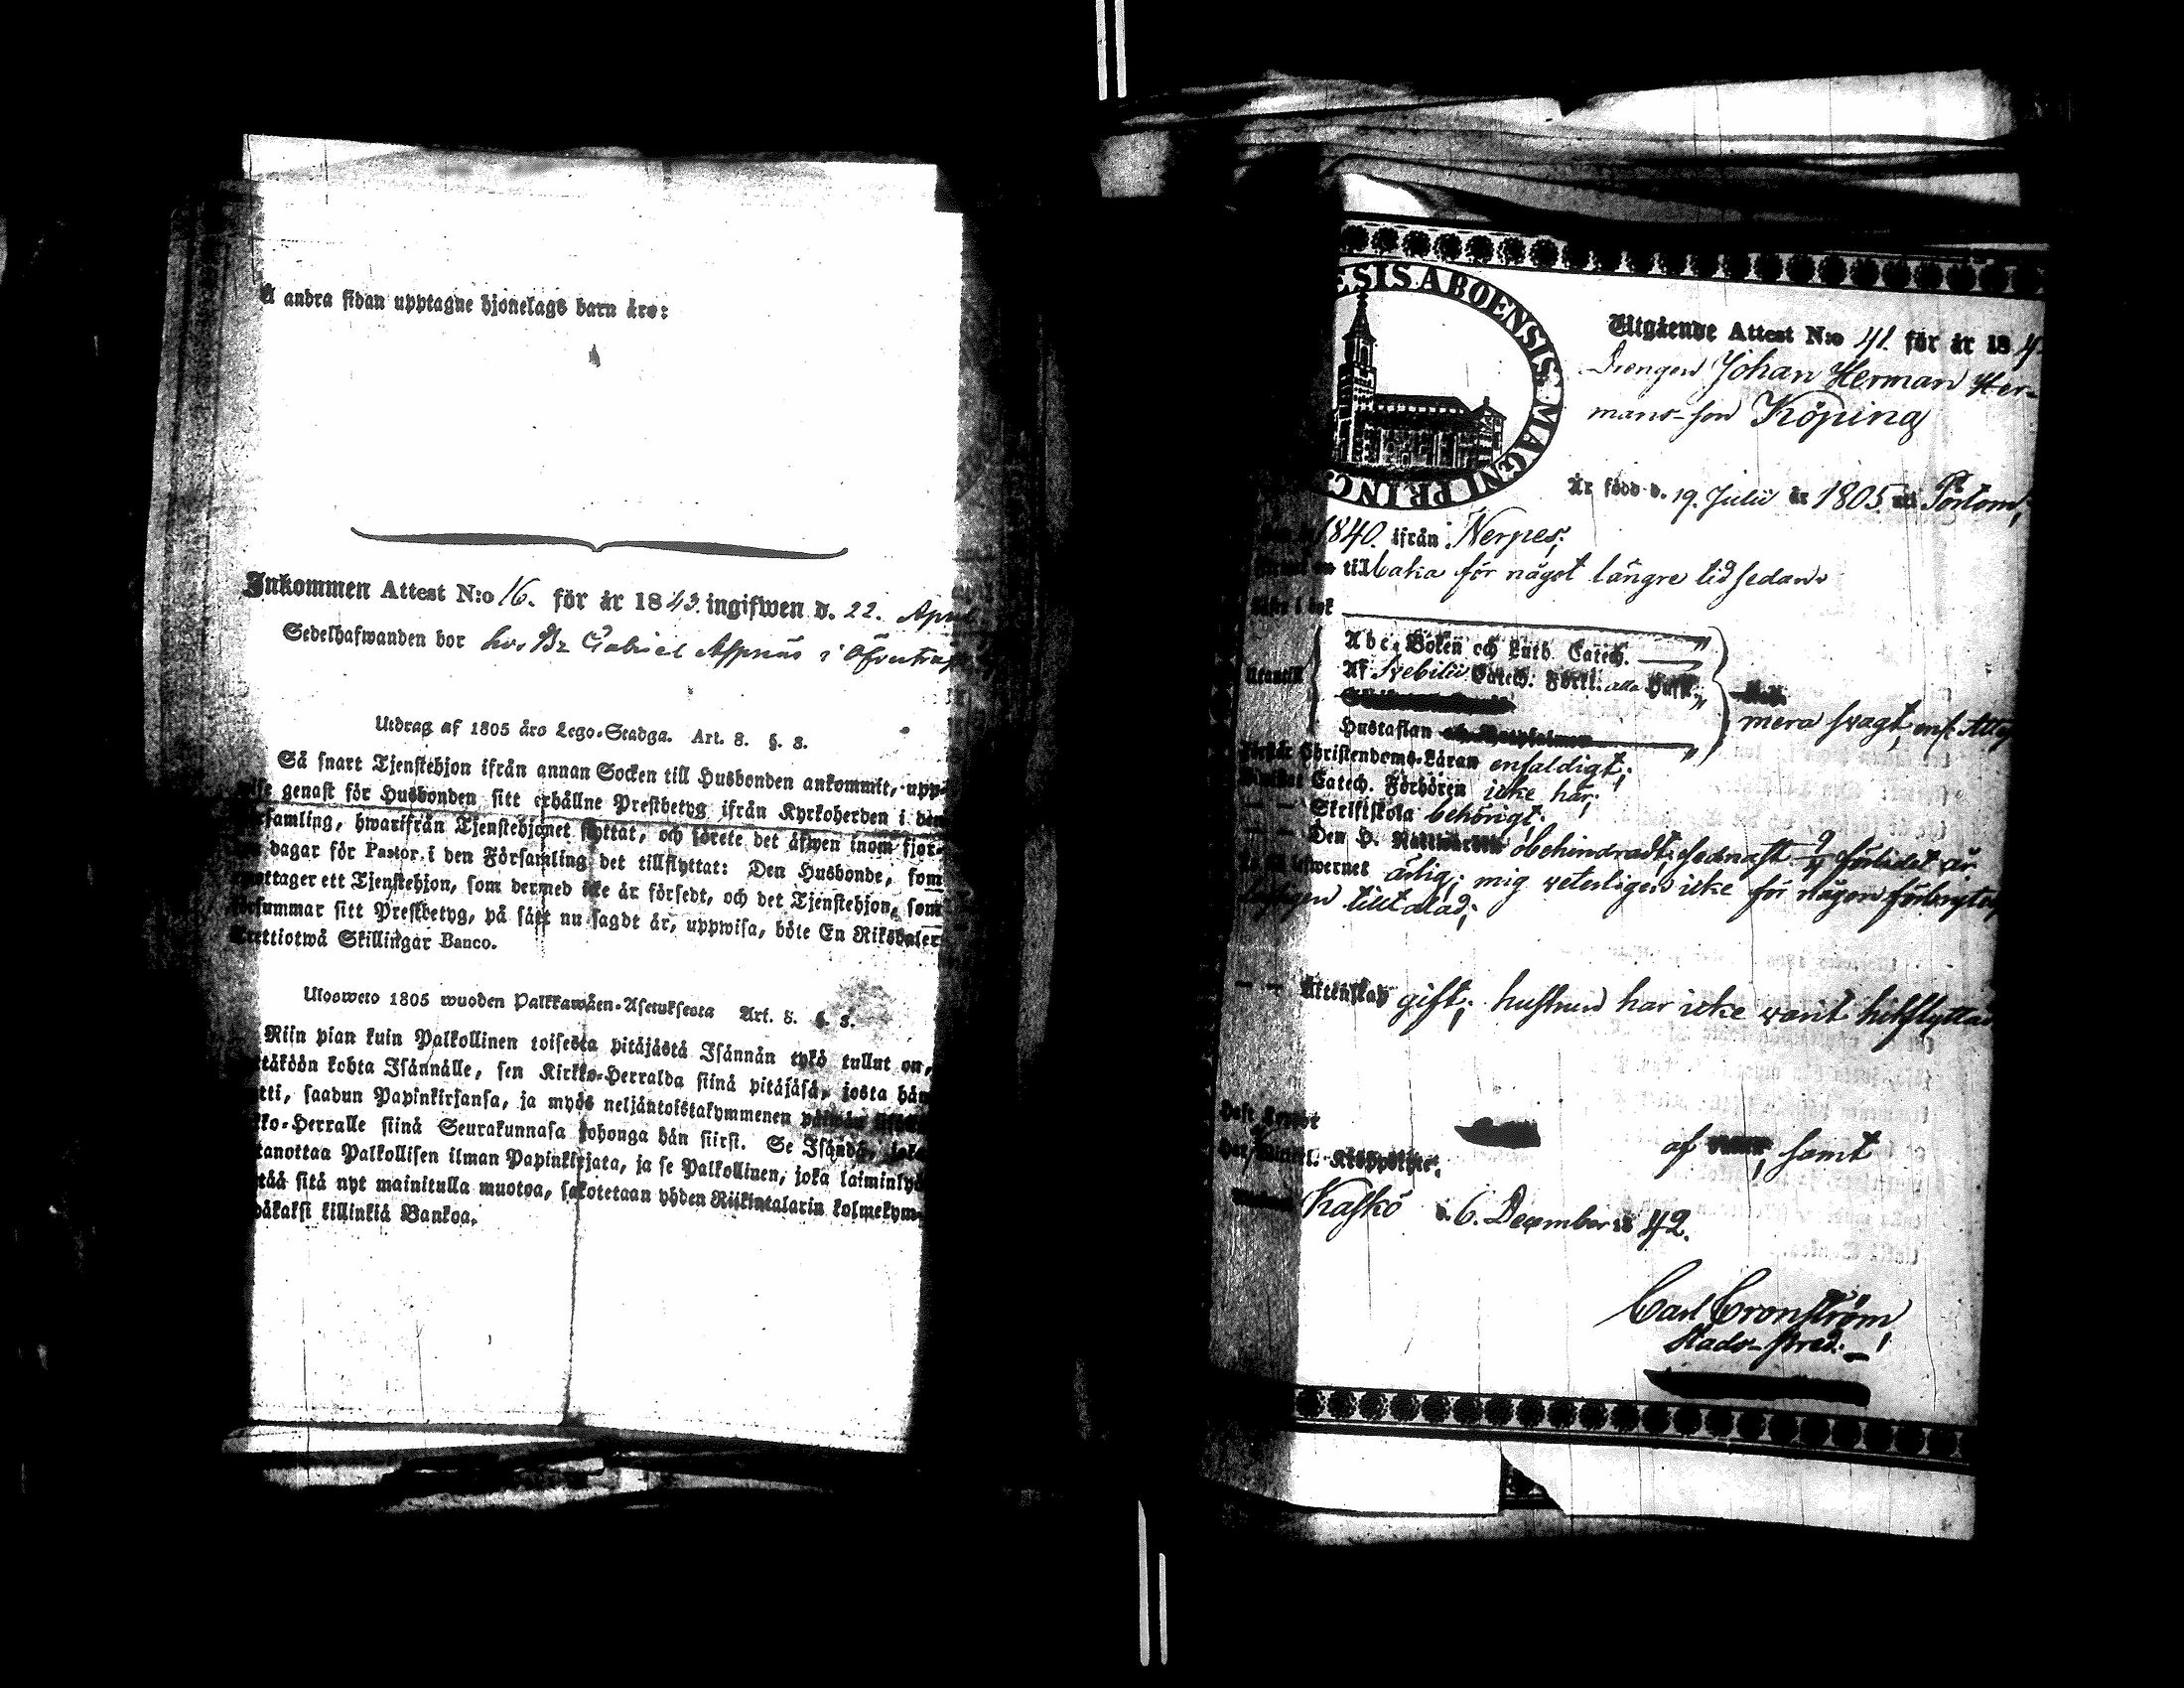 Å andra sidan upptagne hjonelags barn äro:
Inkommen Attest N:o 16. för år 1843. ingifwen d. 22. April
Sedelhafwanden bor hos Bz Gabriel Aspnäs i Öfvertrask
Utdrag af 1805 års Lego-Stadga. Art. 8. §. 8.
Så snart Tjenstehjon ifrån annan Socken till Husbonden ankommit, upp-
genast för Husbonden sitt erhållne Prestbetyg ifrån Kyrkoherden i den
samling, hwarifrån Tjenstehjonet flyttat, och förete det äfwen inom fjor-
dagar för Pastor i den Församling det tillflyttat: Den Husbonde, som
mottager ett Tjenstehjon, som dermed icke är försedt, och det Tjenstehjon, som
försummar sitt Prestbetyg, på sätt nu sagdt är, uppwisa, böte En Riksdaler
trettiotwå Skillingar Banco.
Ulosweto 1805 wuoden Palkkawäen-Asetuksesta Art. 8. §. 8.
Niin pian kuin Palkollinen toisesta pitäjästä Isännän tykö tullut on,
täköön kohta Isännälle, sen Kirkko-Herralda siinä pitäjäsä, josta hän
tti, saadun Papinkirjansa, ja myös neljäntoistakymmenen päiwän
ko-Herralle siinä Seurakunnasa johonga hän siirsi. Se Isändä, joka
tanottaa Palkollisen ilman Papinkirjata, ja se Palkollinen, joka laiminlyö
tää sitä nyt mainitulla muotoa, sakotetaan yhden Riikintalarin kolmekym-
däkaksi killinkiä Bankoa.
ESIS ABOENSIS MAGNI PRINC
Utgående Attest N:o 41. för år 184
Drengen Johan Herman Her-
mans-son Köping
Är född d. 19. Julii år 1805 uti Pörtom;
1840. ifrån Nerpes;
tillbaka för något längre tid sedan.
i bok
Abc-Boken och Luth. Catech. "
Utantill Af Svebilii Catech. Förkl. alla Hufst. "
mera svagt, enf. Attest
Hustaflan "
Förstår Christendoms-Läran enfaldigt;
Catech. Förhören icke här;
— — Skriftskola behörigt;
— — Den H. Nattwarden obehindradt, sednast förlidet år.
lefwernet ärlig; mig veterligen icke för någon förbrytelse
lagligen tilltalad;
— — Äktenskap gift; hustrun har icke varit hitflyttad
af samt
Kaskö d. 6. December 18 42.
Carl Cronström
Stads-pred.